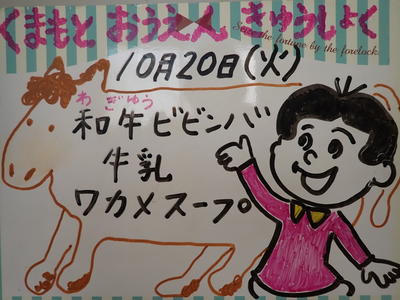 くまもと おうえん きゅうしょく
Seize the fortune by the forelock.
10月20日(火)
わぎゅう
和牛ビビンバ
牛乳
ワカメスープ